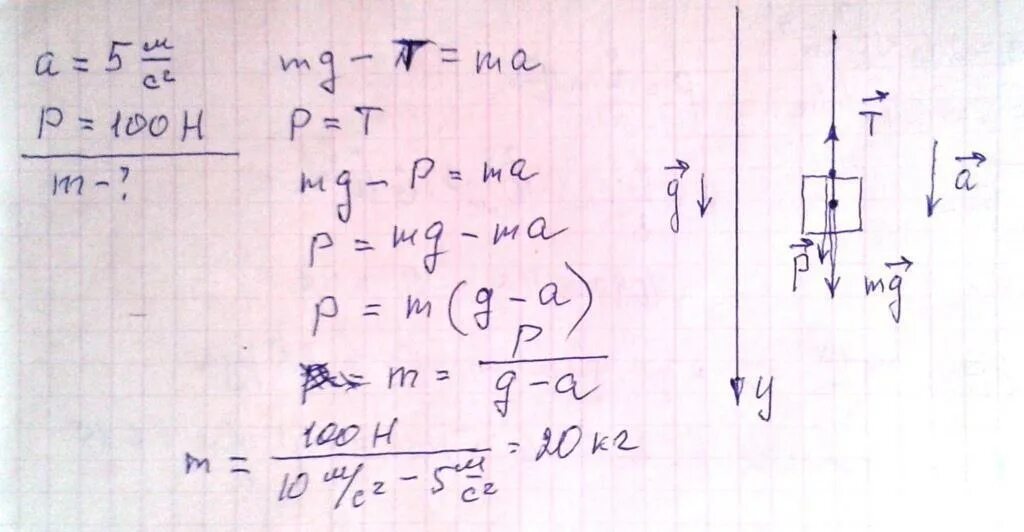 a = 5 м/с²
P = 100 Н
m - ?
mg - T = ma
P = T
mg - P = ma
P = mg - ma
P = m(g - a)
m = P/(g - a)
m = 100 Н/(10 м/с² - 5 м/с²) = 20 кг
T⃗
g⃗
a⃗
P⃗
mg⃗
y